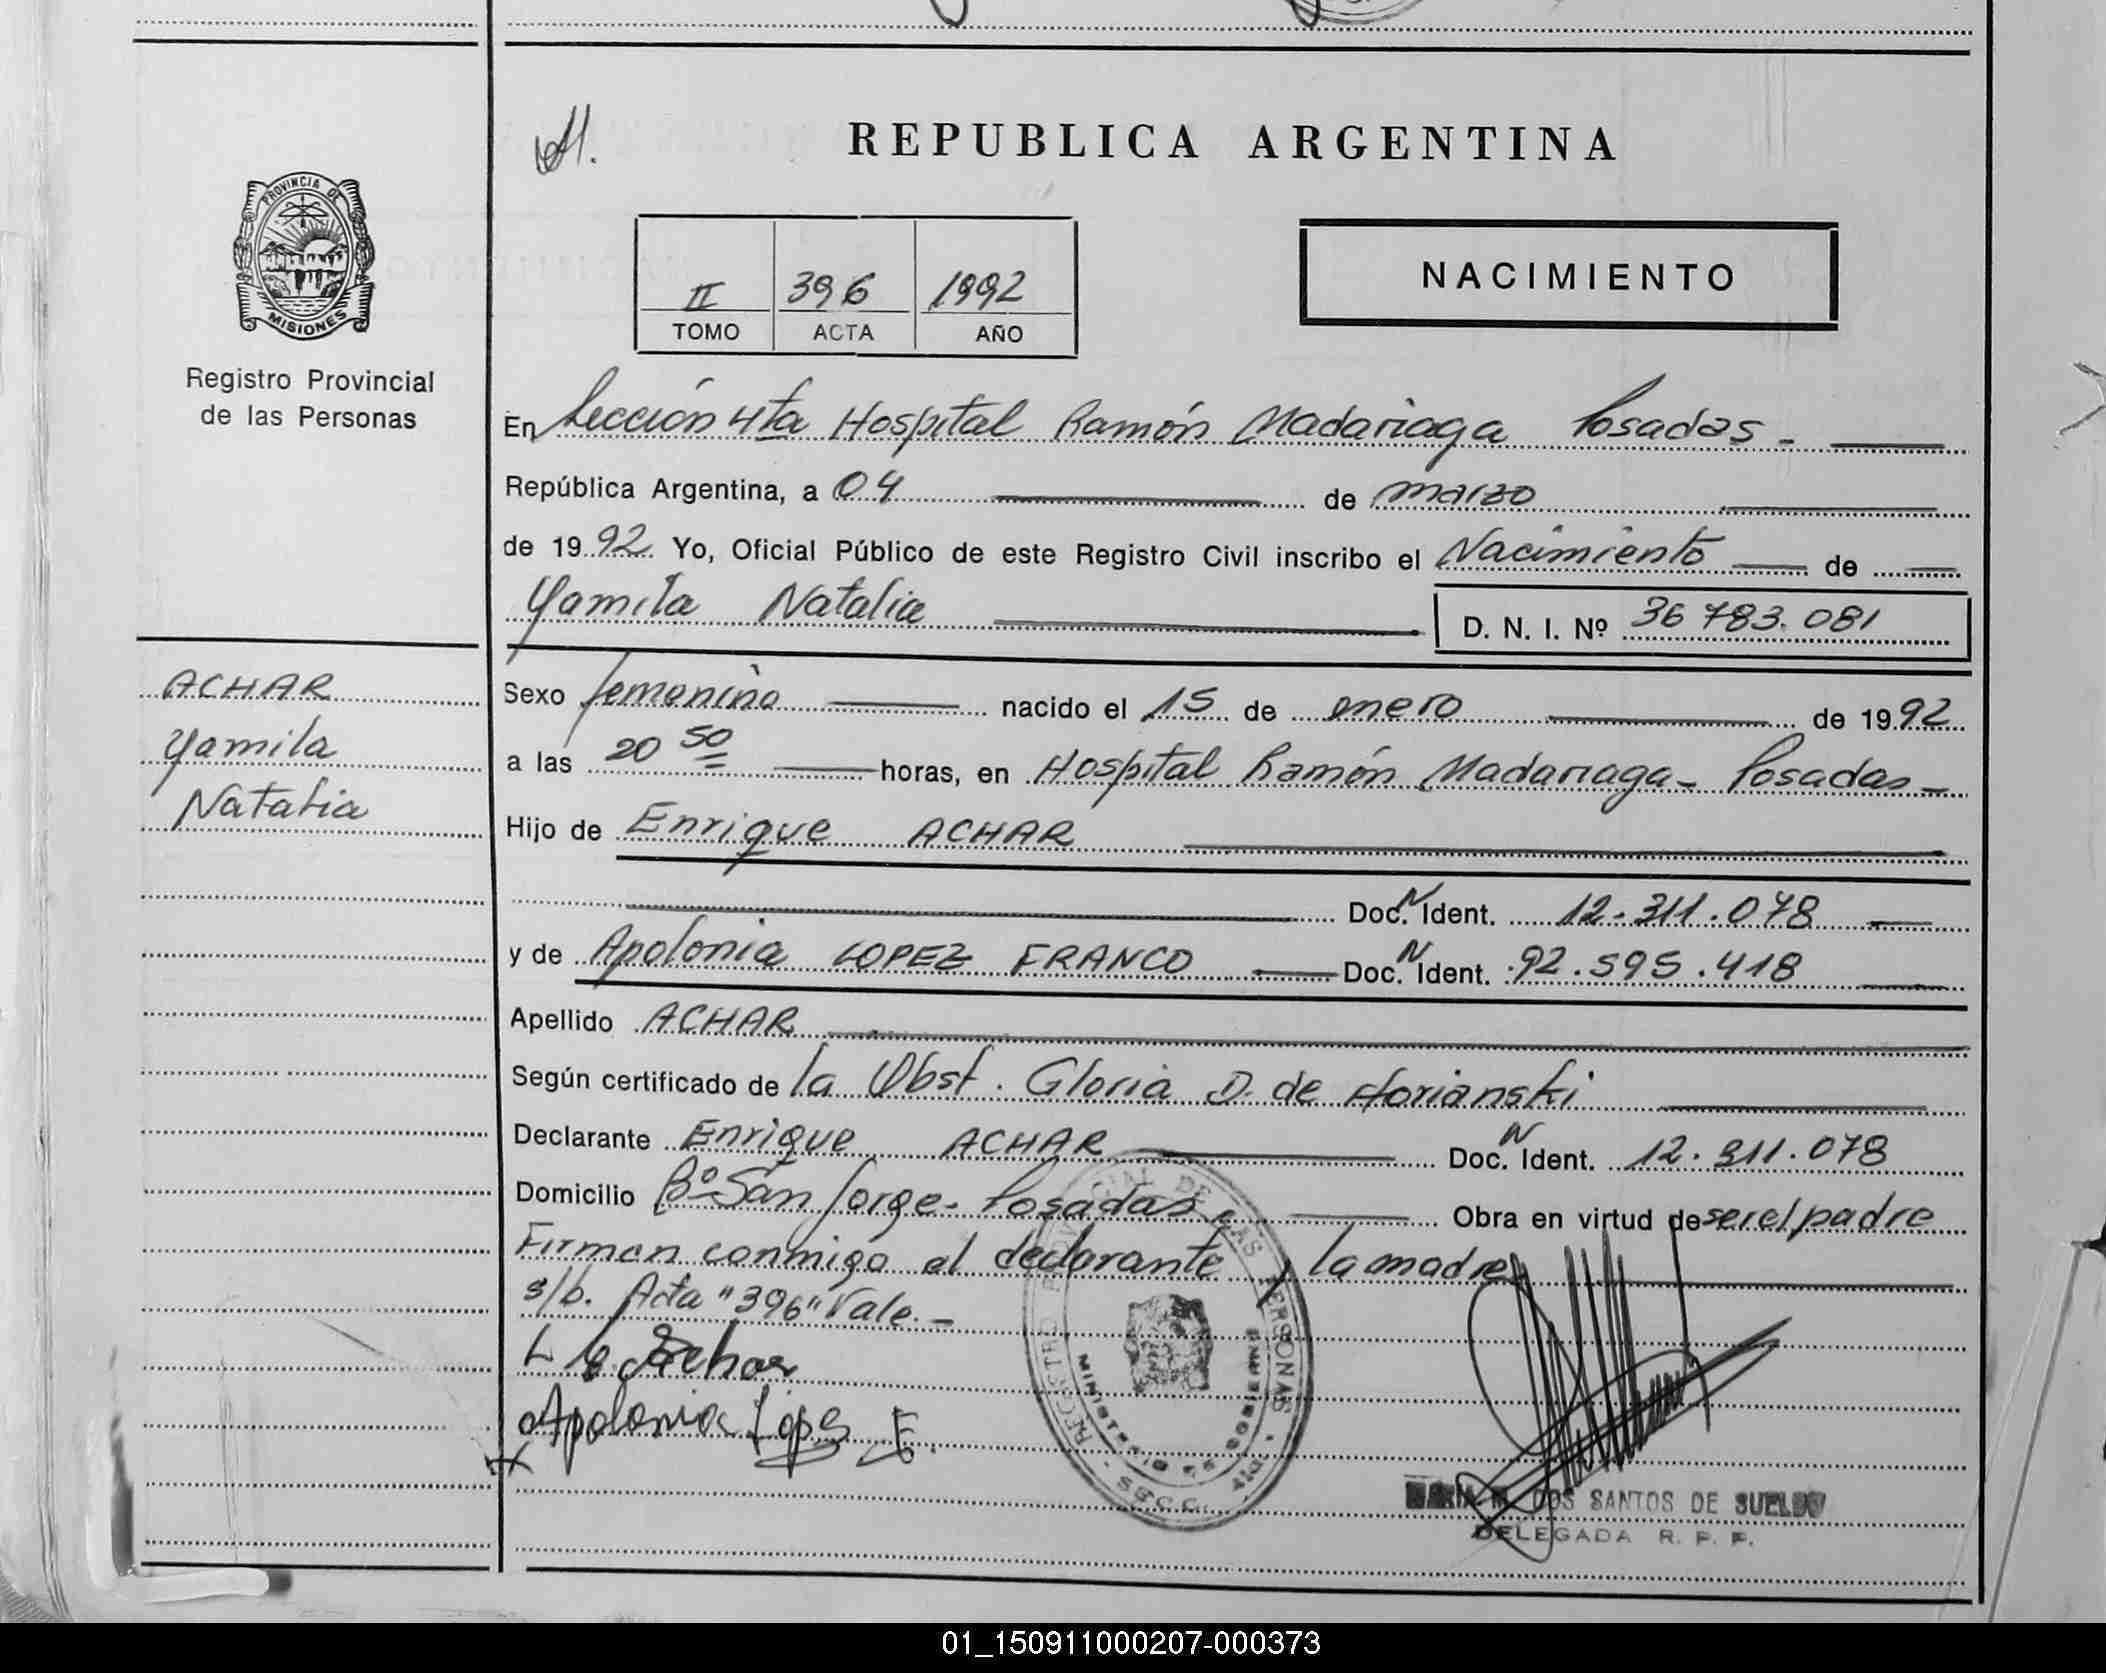 H.
REPUBLICA ARGENTINA
PROVINCIA DE
MISIONES
Registro Provincial
de las Personas
II 396 1992
TOMO ACTA AÑO
NACIMIENTO
En Sección 4ta Hospital Ramón Madariaga Posadas -
República Argentina, a 04 de marzo
de 1992 Yo, Oficial Público de este Registro Civil inscribo el Nacimiento de
Yamila Natalia D. N. I. Nº 36 783.081
ACHAR
Yamila
Natalia
Sexo femenino nacido el 15 de enero de 1992
a las 20 50 horas, en Hospital Ramón Madariaga - Posadas -
Hijo de Enrique ACHAR
Doc. N Ident. 12.311.078
y de Apolonia LOPEZ FRANCO Doc. N Ident. 92.595.418
Apellido ACHAR
Según certificado de la Obst. Gloria D. de
Declarante Enrique ACHAR Doc. N Ident. 12.311.078
Domicilio Bº San Jorge - Posadas Obra en virtud de ser el padre
Firman conmigo el declarante y la madre
s/b. Acta "396" Vale. -
Achar
Apolonia Lops F.
REGISTRO PROVINCIAL DE LAS PERSONAS
MINISTERIO DE GOBIERNO
MARIA M. DOS SANTOS DE SUELDO
DELEGADA R. P. P.
01_150911000207-000373